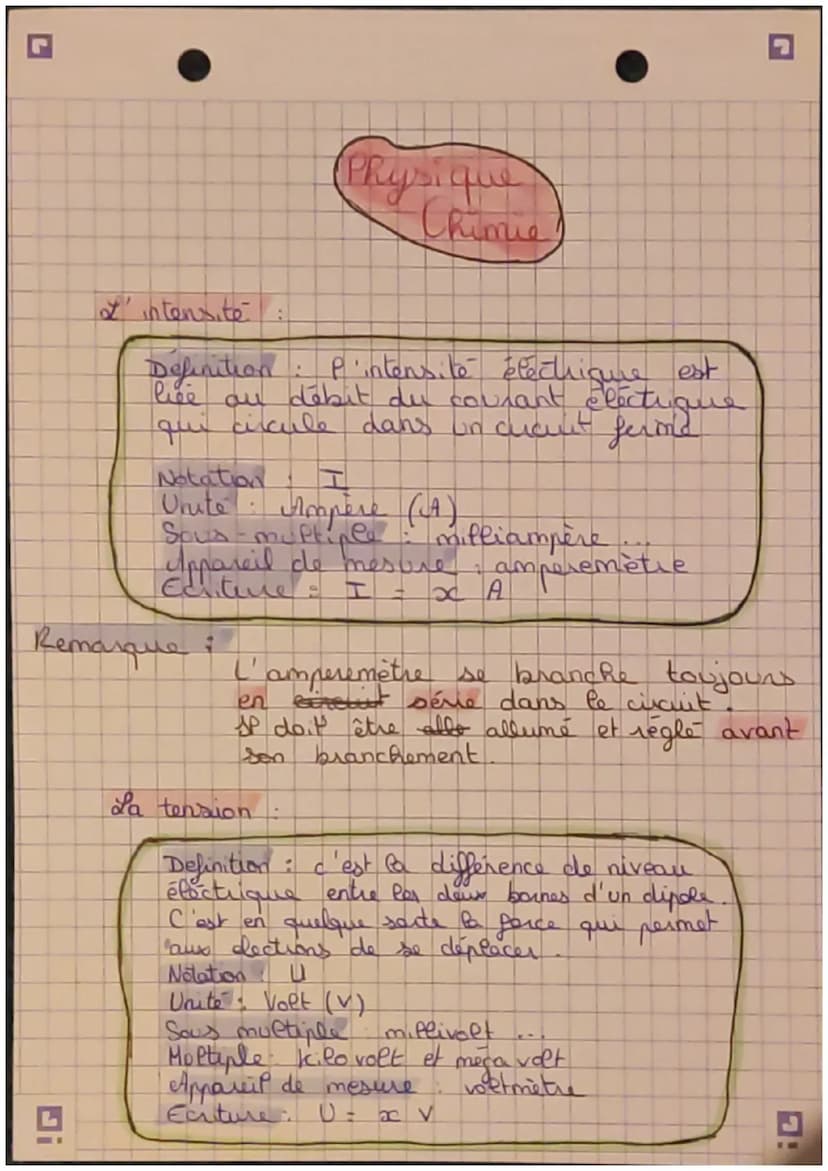 Physique
Chimie
L'intensité :
Définition : l'intensité éléctrique est
liée au débit du courant éléctrique
qui circule dans un circuit fermé
Notation : I
Unité : Ampère (A)
Sous-multiple : milliampère ...
Appareil de mesure : amperemètre
Ecriture = I = x A
Remarque :
L'amperemètre se branche toujours
en circuit série dans le circuit.
Il doit être allo allumé et réglé avant
son branchement.
La tension :
Definition : c'est la différence de niveau
éléctrique entre les deux bornes d'un dipole.
C'est en quelque sorte la force qui permet
aux élections de se déplacer.
Notation : U
Unité : Volt (V)
Sous multiple : millivolt ...
Moltiple : kilovolt et méga volt
Appareil de mesure : voltmètre
Ecriture : U = x V